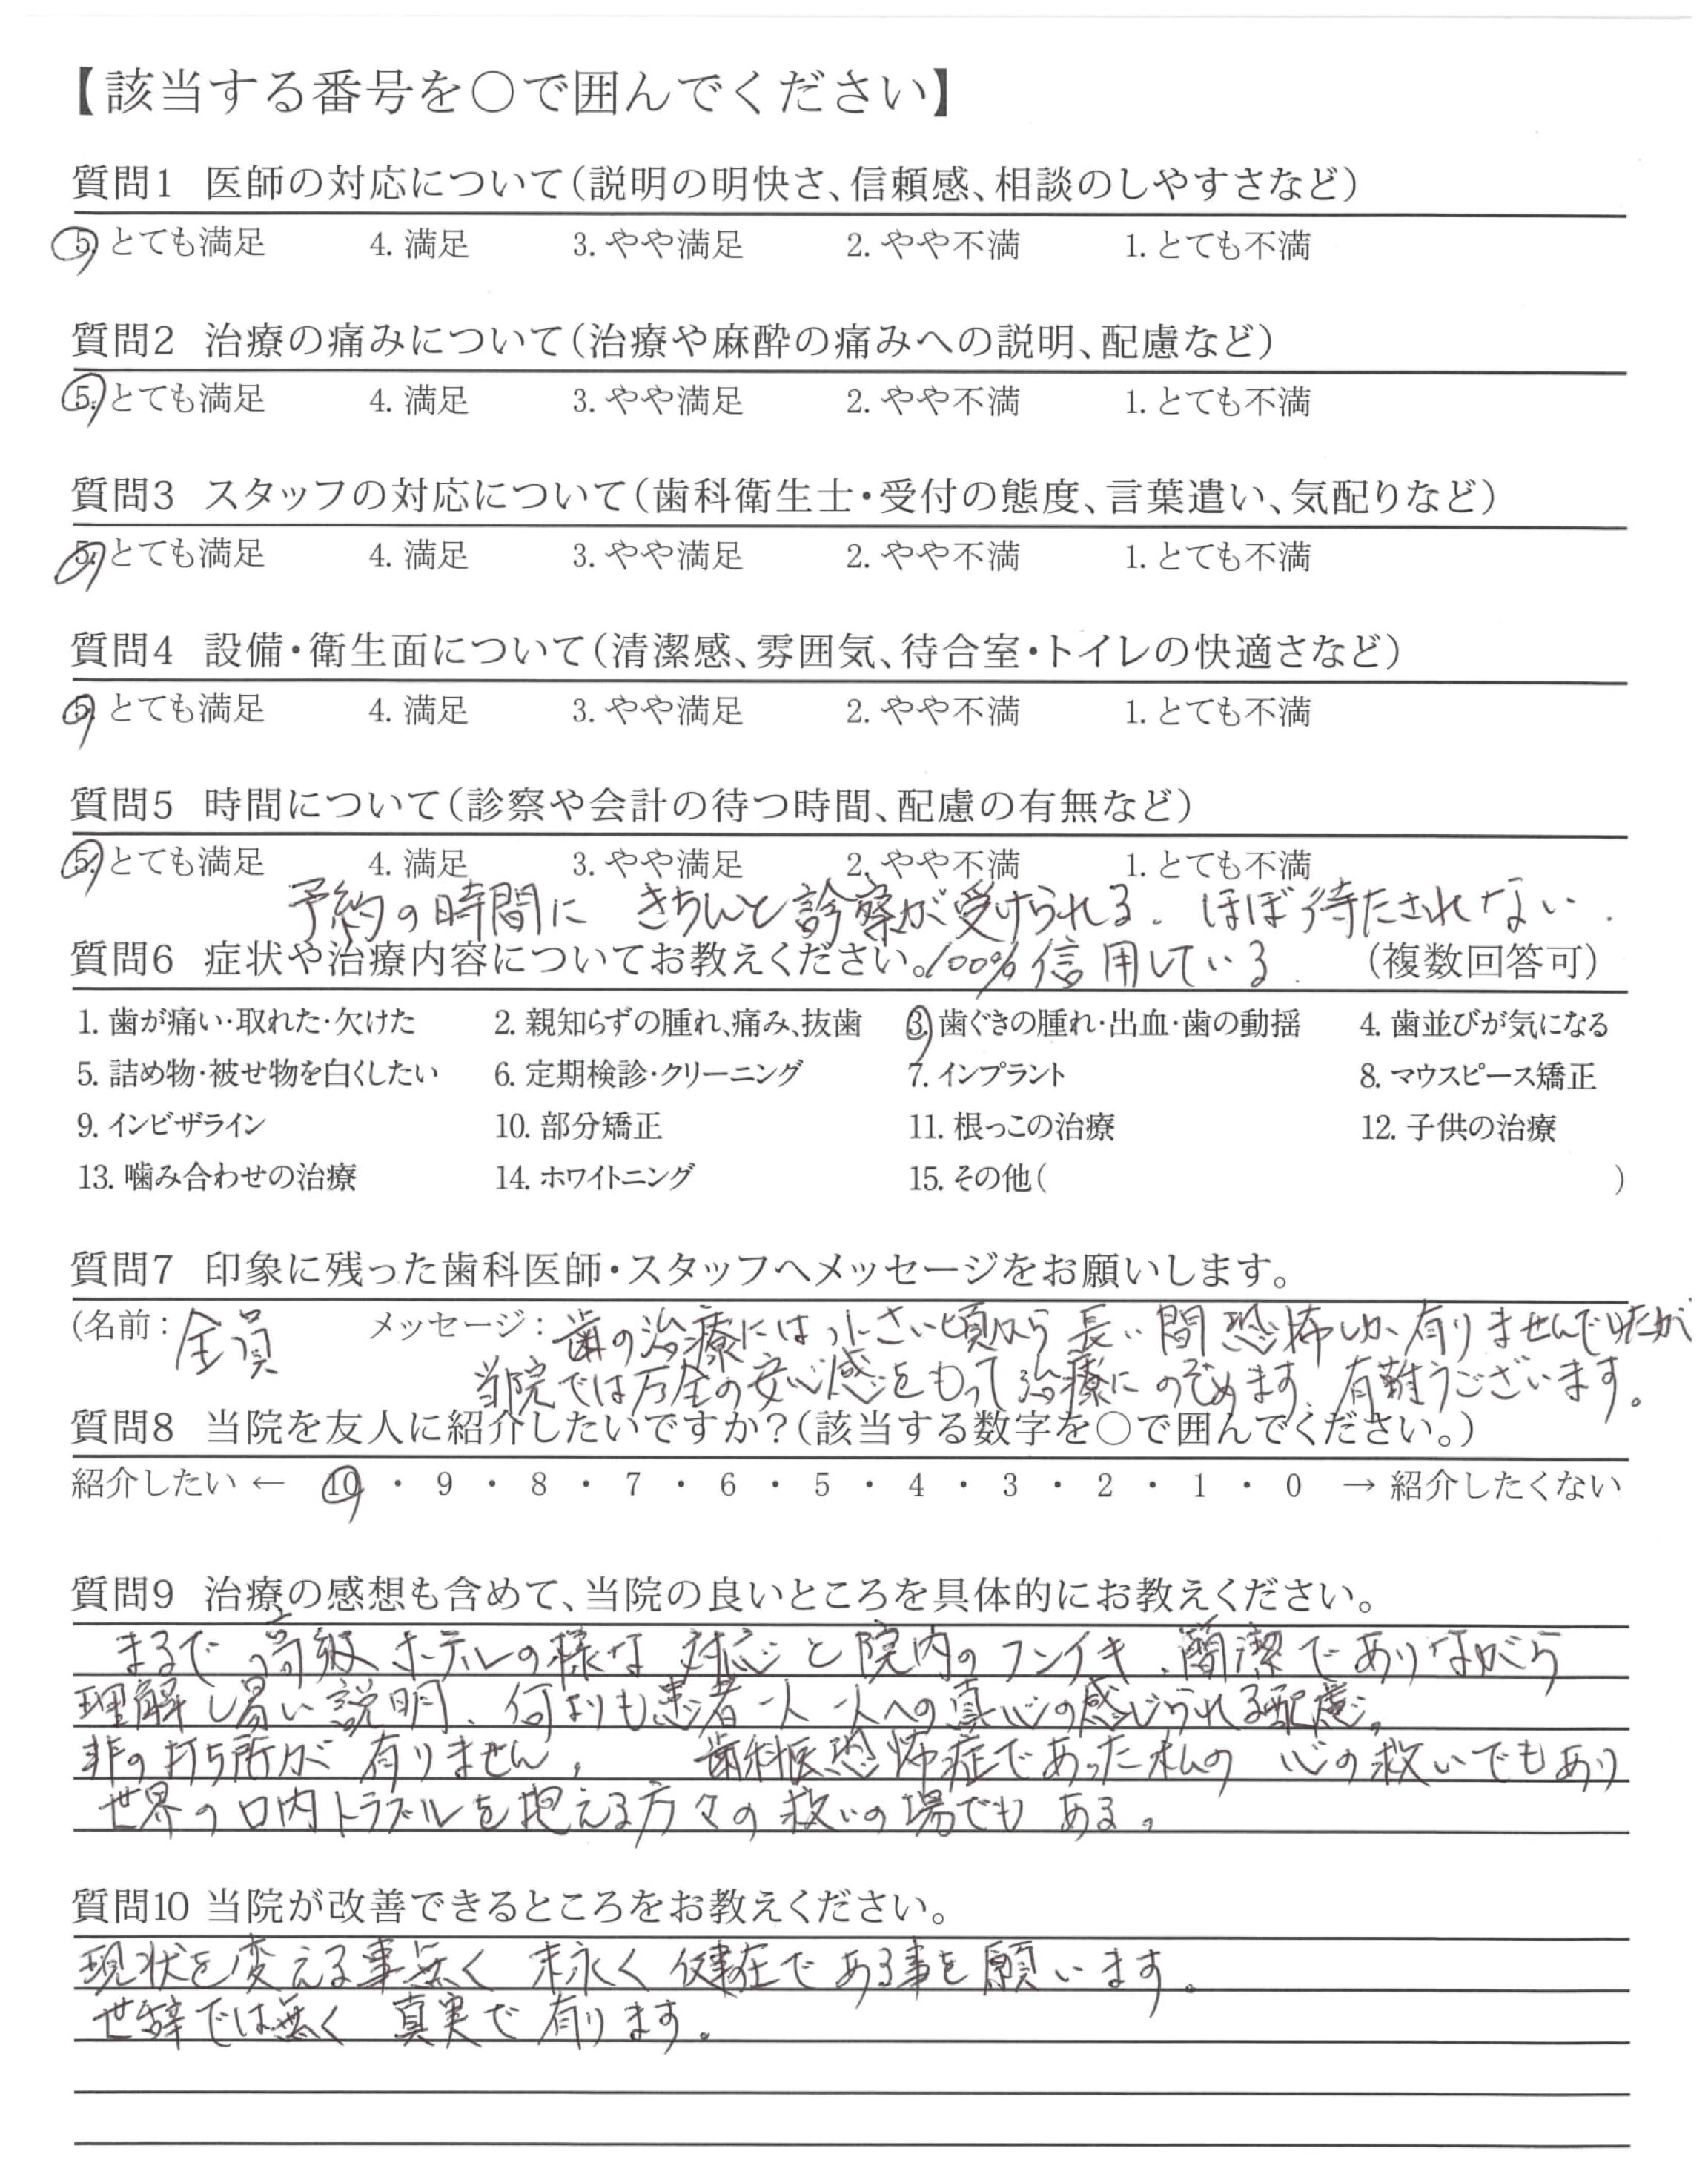 【該当する番号を〇で囲んでください】
質問1 医師の対応について(説明の明快さ、信頼感、相談のしやすさなど)
5. とても満足 4. 満足 3. やや満足 2. やや不満 1. とても不満
質問2 治療の痛みについて(治療や麻酔の痛みへの説明、配慮など)
5. とても満足 4. 満足 3. やや満足 2. やや不満 1. とても不満
質問3 スタッフの対応について(歯科衛生士・受付の態度、言葉遣い、気配りなど)
5. とても満足 4. 満足 3. やや満足 2. やや不満 1. とても不満
質問4 設備・衛生面について(清潔感、雰囲気、待合室・トイレの快適さなど)
5. とても満足 4. 満足 3. やや満足 2. やや不満 1. とても不満
質問5 時間について(診察や会計の待つ時間、配慮の有無など)
5. とても満足 4. 満足 3. やや満足 2. やや不満 1. とても不満
予約の時間に きちんと診察が受けられる. ほぼ待たされない.
質問6 症状や治療内容についてお教えください。 100%信用している. (複数回答可)
1. 歯が痛い・取れた・欠けた 2. 親知らずの腫れ、痛み、抜歯 3. 歯ぐきの腫れ・出血・歯の動揺 4. 歯並びが気になる
5. 詰め物・被せ物を白くしたい 6. 定期検診・クリーニング 7. インプラント 8. マウスピース矯正
9. インビザライン 10. 部分矯正 11. 根っこの治療 12. 子供の治療
13. 噛み合わせの治療 14. ホワイトニング 15. その他( )
質問7 印象に残った歯科医師・スタッフへメッセージをお願いします。
(名前: 全員 メッセージ: 歯の治療には小さい頃から長い間恐怖しか有りませんでしたが
当院では万全の安心感をもって治療にのぞめます. 有難うございます。
質問8 当院を友人に紹介したいですか?(該当する数字を〇で囲んでください。)
紹介したい ← 10 ・ 9 ・ 8 ・ 7 ・ 6 ・ 5 ・ 4 ・ 3 ・ 2 ・ 1 ・ 0 → 紹介したくない
質問9 治療の感想も含めて、当院の良いところを具体的にお教えください。
まるで高級ホテルの様な対応と院内のフンイキ、簡潔でありながら
理解し易い説明、何よりも患者一人一人への真心の感じられる配慮。
非の打ち所が有りません。 歯科医恐怖症であった私の心の救いでもあり
世界の口内トラブルを抱える方々の救いの場でもある。
質問10 当院が改善できるところをお教えください。
現状を変える事無く 末永く健在である事を願います。
世辞では無く 真実で有ります。